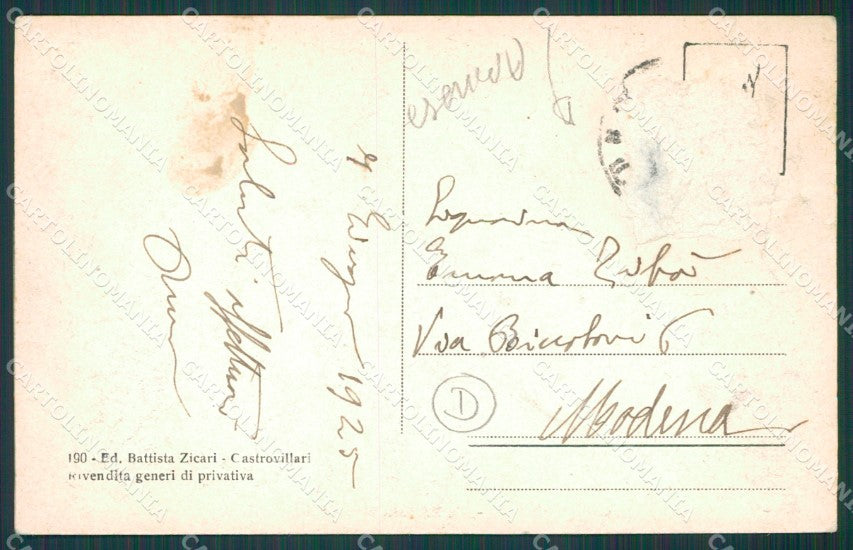 4 Giugno 1925
Saluti affettuosi
Signorina
Emma Zubò
Via Biccolovi 6
Modena
D
190 - Ed. Battista Zicari - Castrovillari
Rivendita generi di privativa
CARTOLINOMANIA